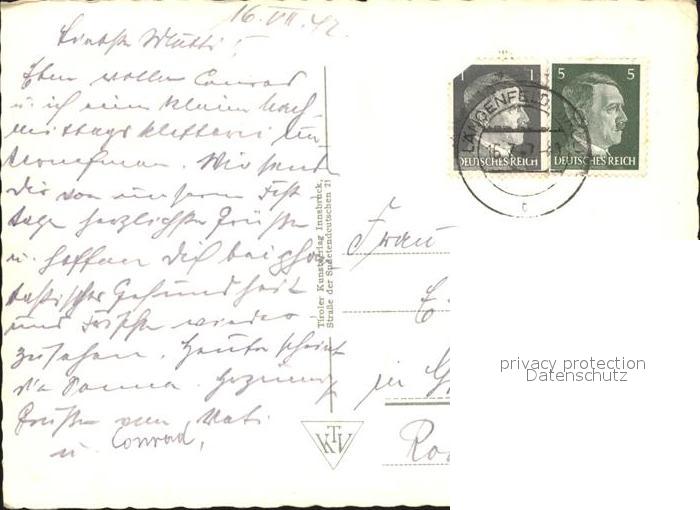 16. VII. 42.
Liebste Mutti!
Eben wollen Conrad
u. ich eine kleine Nach-
mittagskletterei un-
ternehmen. Wir senden
Dir von unserem Fest-
tage herzlichste Grüße
u. hoffen Dich bei
Gesundheit
und Frische wieder
zusehen. Heute scheint
die Sonne.
Grüße von Vati
u. Conrad,
Tiroler Kunstverlag Innsbruck,
Straße der Sudetendeutschen 21
KTV
1 1
DEUTSCHES REICH
5 5
DEUTSCHES REICH
LÄNGENFELD
c
Frau
E.
in G
Ro
privacy protection
Datenschutz